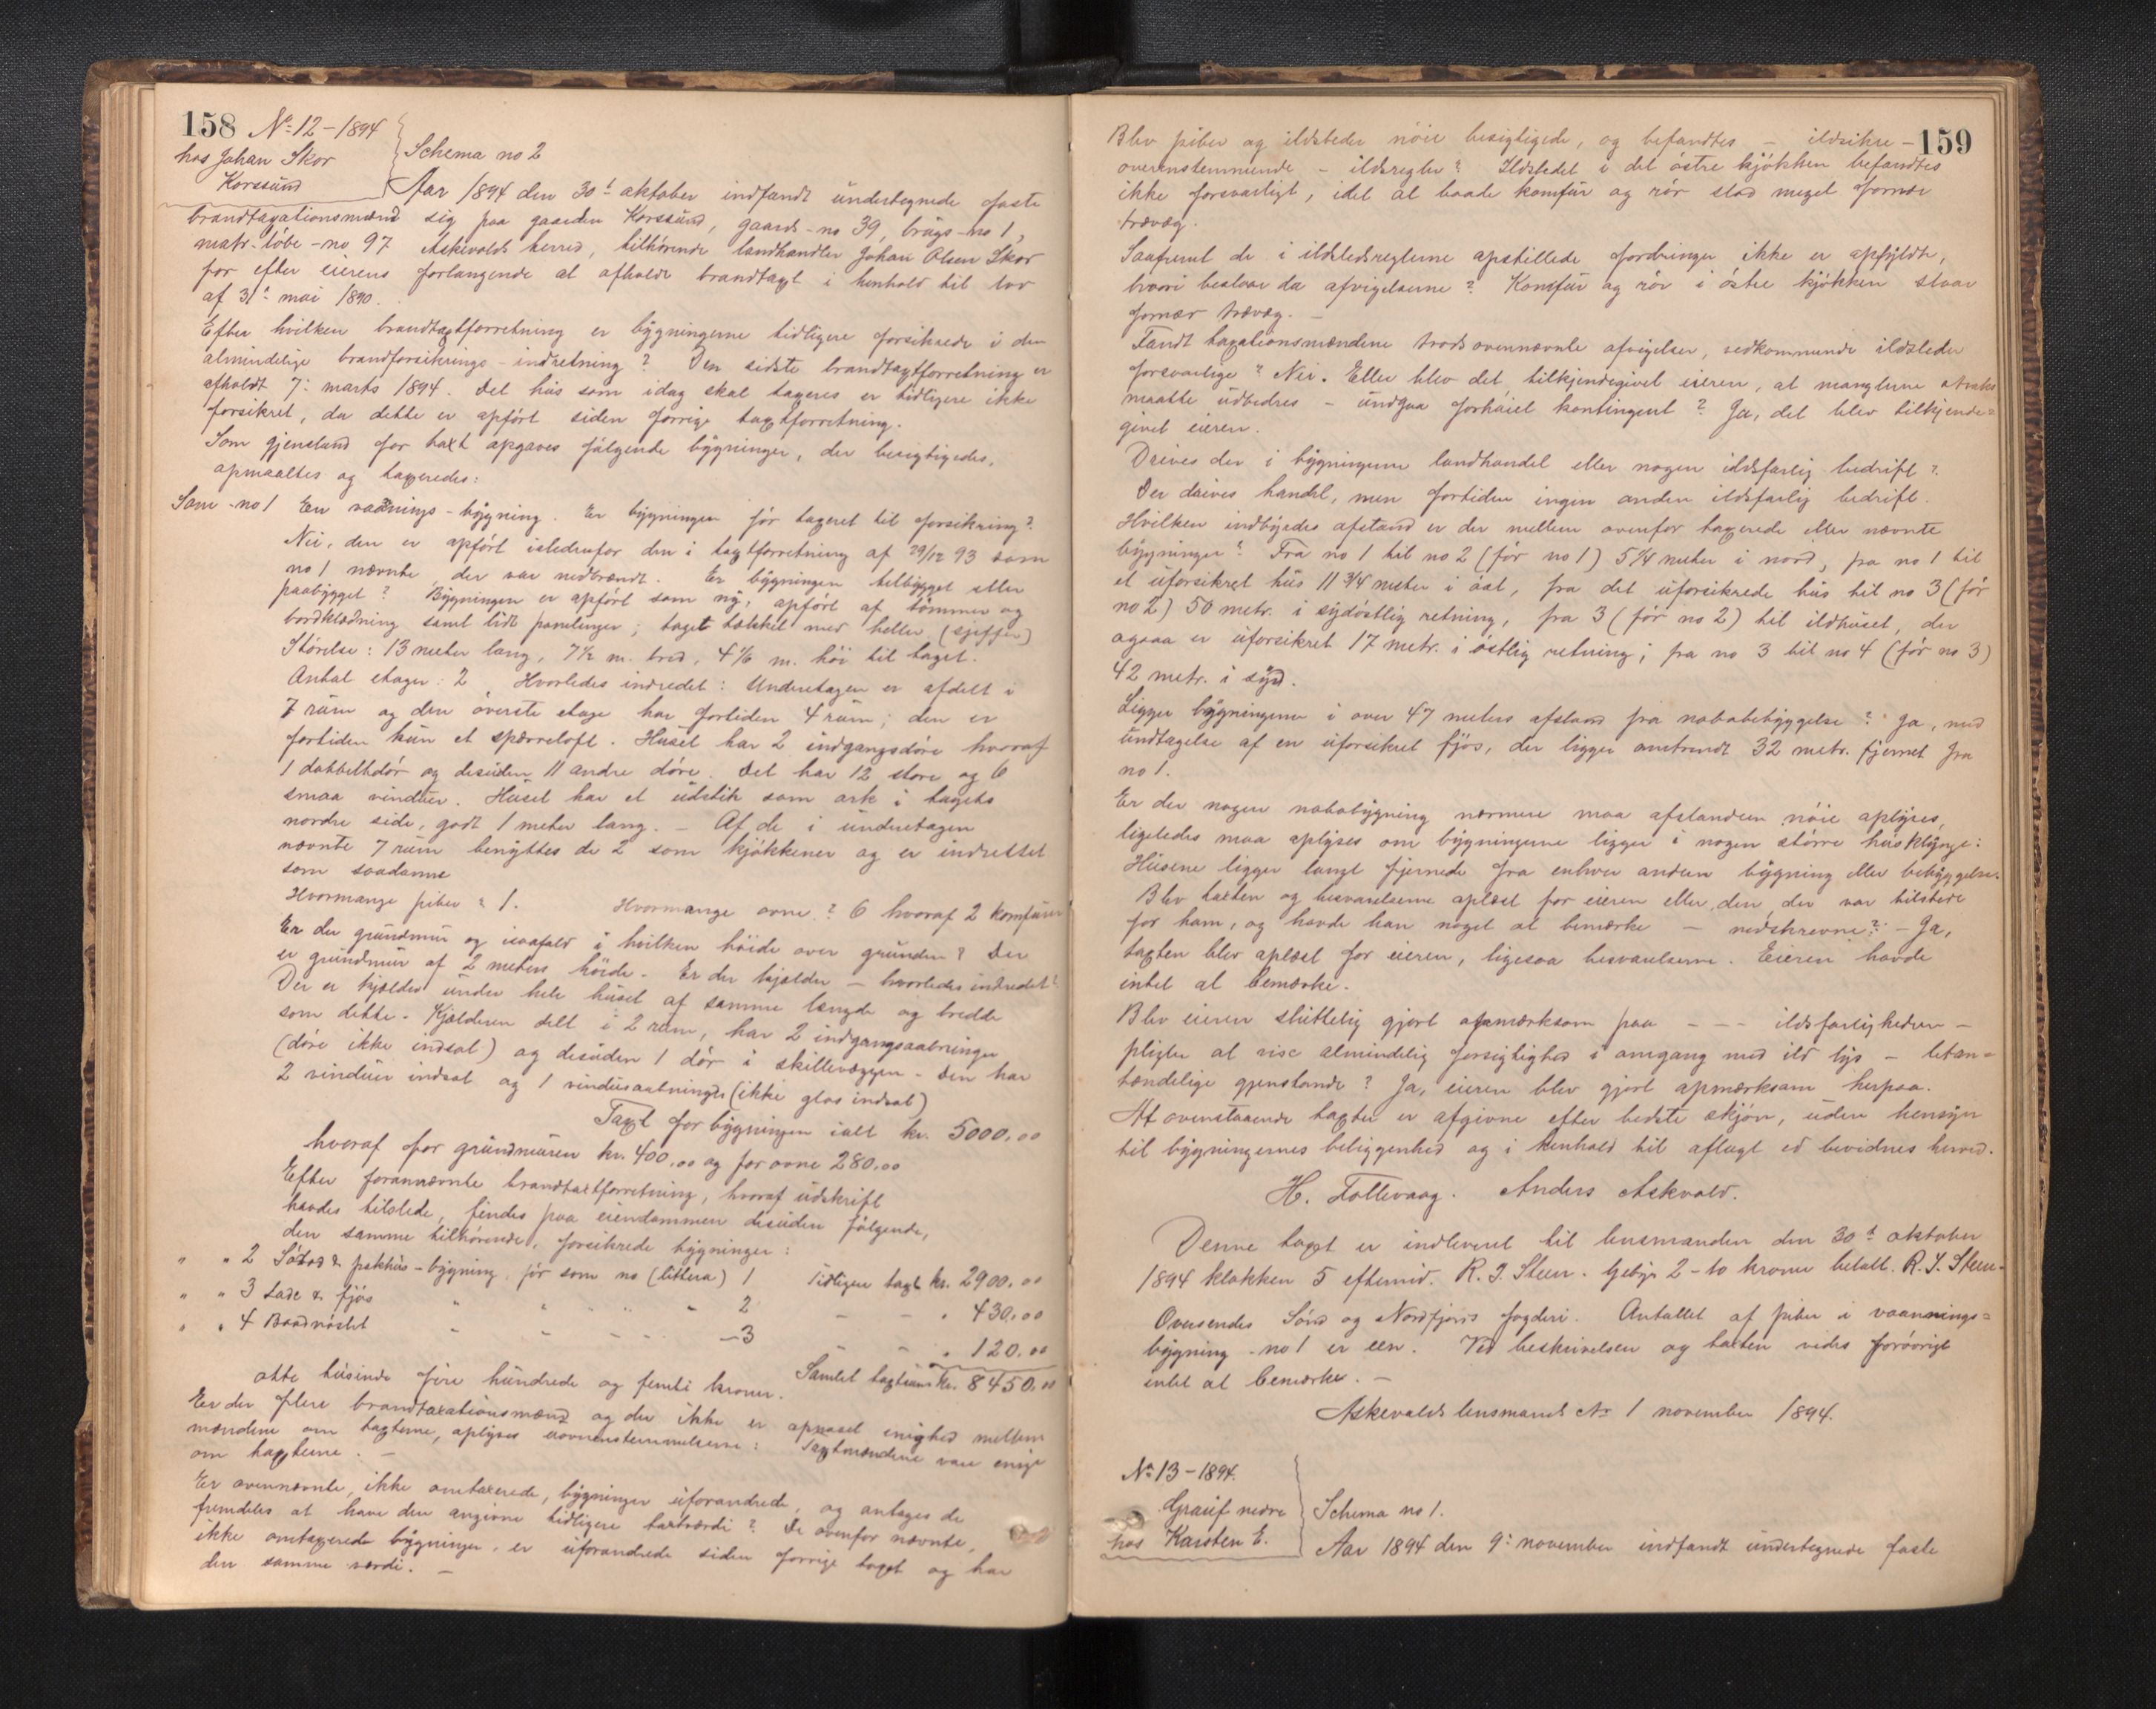 158 No 12 - 1894
hos Johan Skor
Korssund
Schema no 2
Aar 1894 den 30te oktober indfandt undertegnede faste
brandtaxationsmænd sig paa gaarden Korssund, gaards-no 39, brugs-no 1,
matr.-løbe-no 97 Askevolds herred, tilhørende landhandler Johan Olsen Skor
for efter eierens forlangende at afholde brandtaxt i henhold til lov
af 31te mai 1890.
Efter hvilken brandtaxtforretning er bygningerne tidligere forsikrede i den
almindelige brandforsikrings-indretning? Den sidste brandtaxtforretning er
afholdt 7de marts 1894. Det hus som idag skal taxeres er tidligere ikke
forsikret, da dette er opført siden forrige taxtforretning.
Som gjenstand for taxt opgaves følgende bygninger, der besigtigedes,
opmaaltes og taxeredes:
Som no 1 En vaanings-bygning. Er bygningen før taxeret til forsikring?
Nei, den er opført istedenfor den i taxtforretning af 29/12 93 som
no 1 nævnte, der var nedbrændt. Er bygningen tilbygget eller
paabygget? Bygningen er opført som ny, opført af tømmer og
bordklædning samt lidt panelinger; taget tækket med heller (sjeffer)
Størelse: 13 meter lang, 7 1/2 m. bred, 4 1/6 m. høi til taget.
Antal etager: 2 Hvorledes indredet: Underetagen er afdelt i
7 rum og den øverste etage har fortiden 4 rum; den er
fortiden kun et sperreloft. Huset har 2 indgangsdøre hvoraf
1 dobbeltdør og desuden 11 andre døre. Det har 12 store og 6
smaa vinduer. Huset har et udstik som ark i tagets
nordre side, godt 1 meter lang. - Af de i underetagen
nævnte 7 rum benyttes de 2 som kjøkkener og er indrettet
som saadanne
Hvormange piber? 1. Hvormange ovne? 6 hvoraf 2 komfurer
Er der grundmur og isaafald i hvilken høide over grunden? Der
er grundmur af 2 meters høide. Er der kjælder - hvorledes indredet?
Der er kjælder under hele huset af samme længde og bredde
som dette. Kjælderen delt i 2 rum, har 2 indgangsaabninger
(døre ikke indsat) og desuden 1 dør i skillevæggen. Den har
2 vinduer indsat og 1 vinduesaabninger (ikke glas indsat)
Taxt for bygningen ialt kr. 5000,00
hvoraf for grundmuren kr. 400,00 og for ovne 280,00
Efter forannævnte brandtaxtforretning, hvoraf udskrift
havdes tilstede, findes paa eiendommen desuden følgende,
den samme tilhørende, forsikrede bygninger:
" " 2 Søbod & pakhus-bygning før som no (littera) 1 Tidligere taxt kr. 2900,00
" " 3 Lade & fjøs " " " " 2 - - " 430,00
" " 4 Baadnøstet - - - - - 3 - " 120,00
Samlet taxtsum kr. 8450,00
otte tusinde fire hundrede og femti kroner.
Er der flere brandtaxationsmænd og der ikke er opnaaet enighed mellem
mændene om taxterne, oplyses uovensstemmelserne: Taxtmændene vare enige
om taxterne. -
Er ovennævnte, ikke omtaxerede, bygninger uforandrede, og antages de
fremdeles at have den angivne tidligere taxtværdi? De ovenfor nævnte,
ikke omtaxerede bygninger, er uforandrede siden forrige taxt og har
den samme værdi. -
159
Blev piber og ildsteder nøie besigtigede, og befandtes - ildsikre -
overensstemmende - ildsregler? Ildstedet i det østre kjøkken befandtes
ikke forsvarligt, idet at baade komfur og rør stod meget fornær
trævæg.
Saafremt de i ildstedsreglerne opstillede fordringer ikke er opfyldte,
hvori bestaar da afvigelserne? Komfur og rør i østre kjøkken staar
fornær trævæg. -
Fandt taxationsmændene trods ovennævnte afvigelser, vedkommende ildsteder
forsvarlige? Nei. Eller blev det tilkjendegivet eieren, at manglerne straks
maatte udbedres - undgaa forhøiet kontingent? Ja, det blev tilkjende=
givet eieren.
Drives der i bygningerne landhandel eller nogen ildsfarlig bedrift?
Der drives handel, men fortiden ingen anden ildsfarlig bedrift.
Hvilken indbyrdes afstand er der mellem ovenfor taxerede eller nævnte
bygninger? Fra no 1 til no 2 (før no 1) 5 1/4 meter i nord, fra no 1 til
et uforsikret hus 11 3/4 meter i øst, fra det uforsikrede hus til no 3 (før
no 2) 50 metr. i sydøstlig retning, fra 3 (før no 2) til ildhuset, der
ogsaa er uforsikret 17 metr. i østlig retning; fra no 3 til no 4 (før no 3)
42 metr. i syd.
Ligger bygningerne i over 47 meters afstand fra nabobebyggelse? Ja, med
undtagelse af en uforsikret fjøs, der ligger omtrendt 32 metr. fjernet fra
no 1.
Er der nogen nabobygning nærmere maa afstanden nøie oplyses,
ligeledes maa oplyses om bygningerne ligger i nogen større husklynge:
Husene ligger langt fjernede fra enhver anden bygning eller bebyggelse.
Blev taxten og besvarelserne oplæst for eieren eller den, der var tilstede
for ham, og havde han noget at bemærke - nedskrevne? - Ja,
taxten blev oplæst for eieren, ligesaa besvarelserne. Eieren havde
intet at bemærke.
Blev eieren sluttelig gjort opmærksom paa - - - ildsfarligheden -
pligter at vise almindelig forsigtighed i omgang med ild lys - letan=
tændelige gjenstande? Ja, eieren blev gjort opmærksom herpaa.
At ovenstaaende taxter er afgivne efter bedste skjøn, uden hensyn
til bygningernes beliggenhed og i henhold til aflagt ed bevidnes herved.
H. Tollevaag. Anders Askvold.
Denne taxt er indleveret til lensmanden den 30te oktober
1894 klokken 5 eftermid. R. J. Steen. Gebyr 2 - to kroner betalt. R. J. Steen.
Oversendes Sønd og Nordfjords fogderi. Antallet af piber i vaannings=
bygning no 1 er een. Ved beskrivelsen og taxten vides forøvrigt
intet at bemærke. -
Askevolds lensmands 1 november 1894.
No 13 - 1894.
Grauf nedre
hos Karsten E.
Schema no 1.
Aar 1894 den 9de november indfandt undertegnede faste